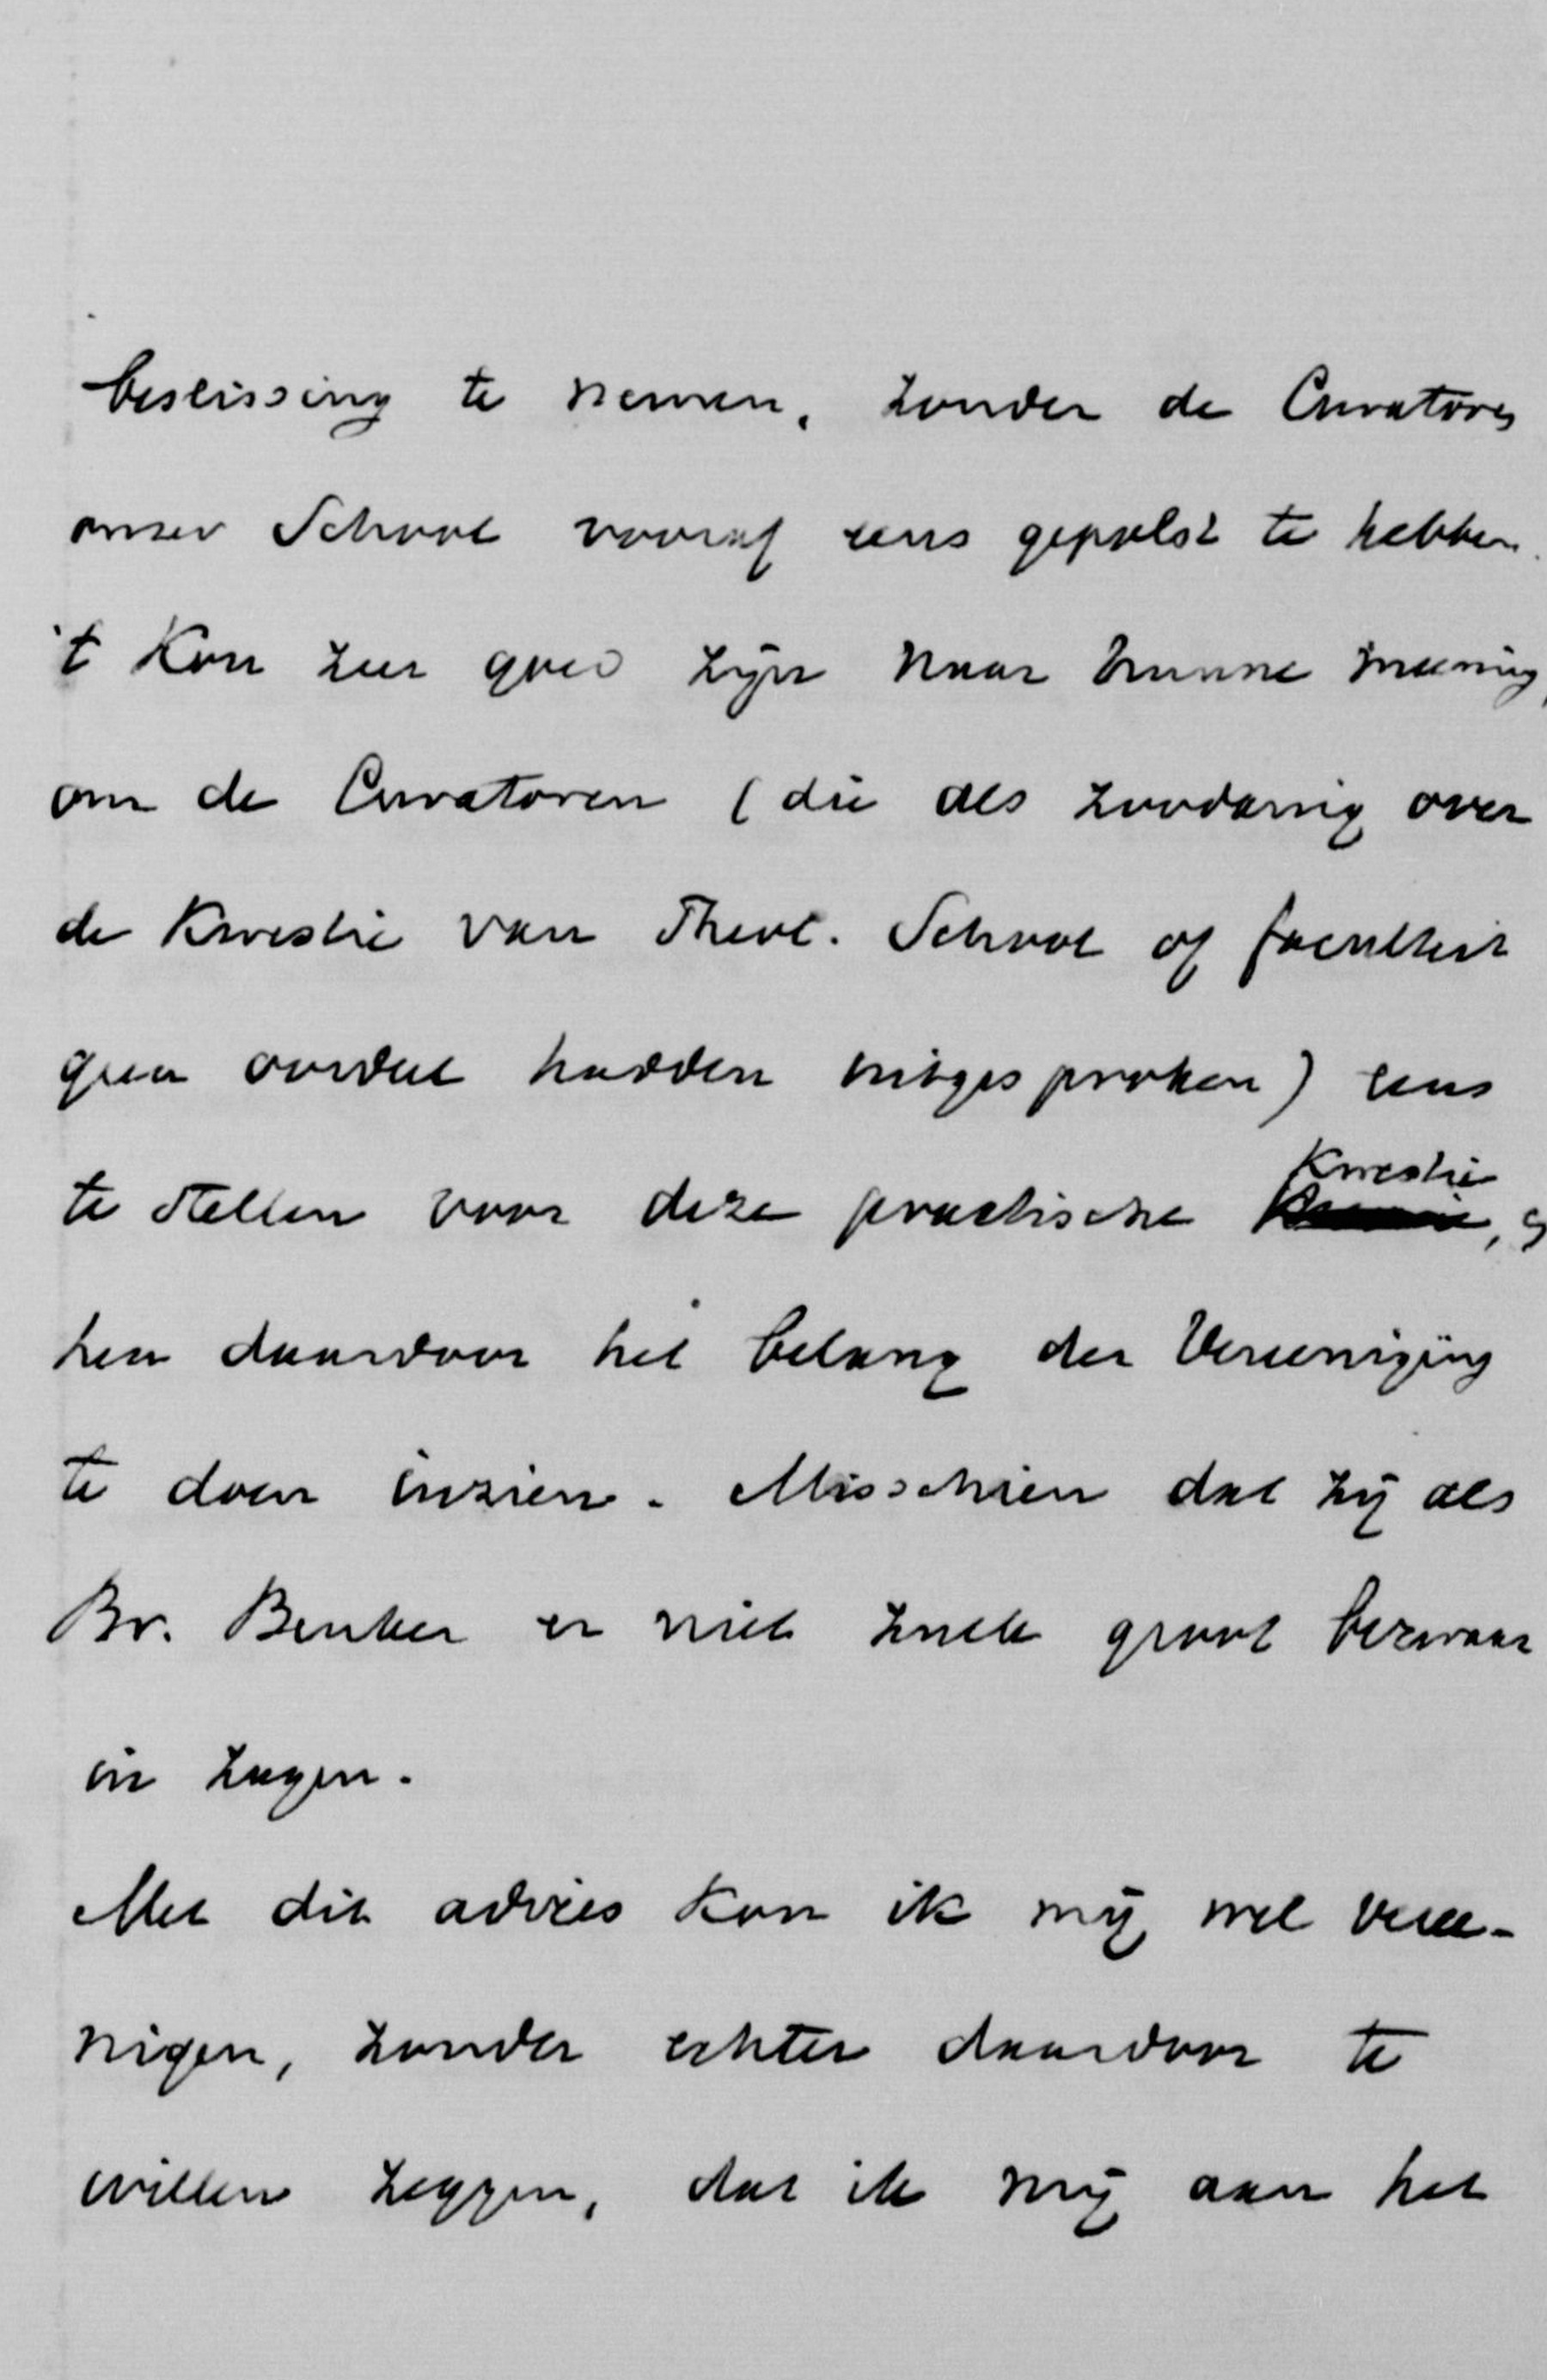 beslissing te nemen, zonder de Curatoren
onzer School vooraf eens gepolst te hebben.
't Kon zeer goed zijn naar hunne meening,
om de Curatoren (die als zoodanig over
de Kwestie van Theol. School of faculteit
geen oordeel hadden uitgesproken) eens
te stellen voor deze practische Kwestie,
hen daardoor het belang der Vereeniging
te doen inzien. Misschien dat zij als
Br. Beuker er niet zulk groot bezwaar
in zagen.
Met dit advies kon ik mij wel veree-
nigen, zonder echter daardoor te
willen zeggen, dat ik mij aan het